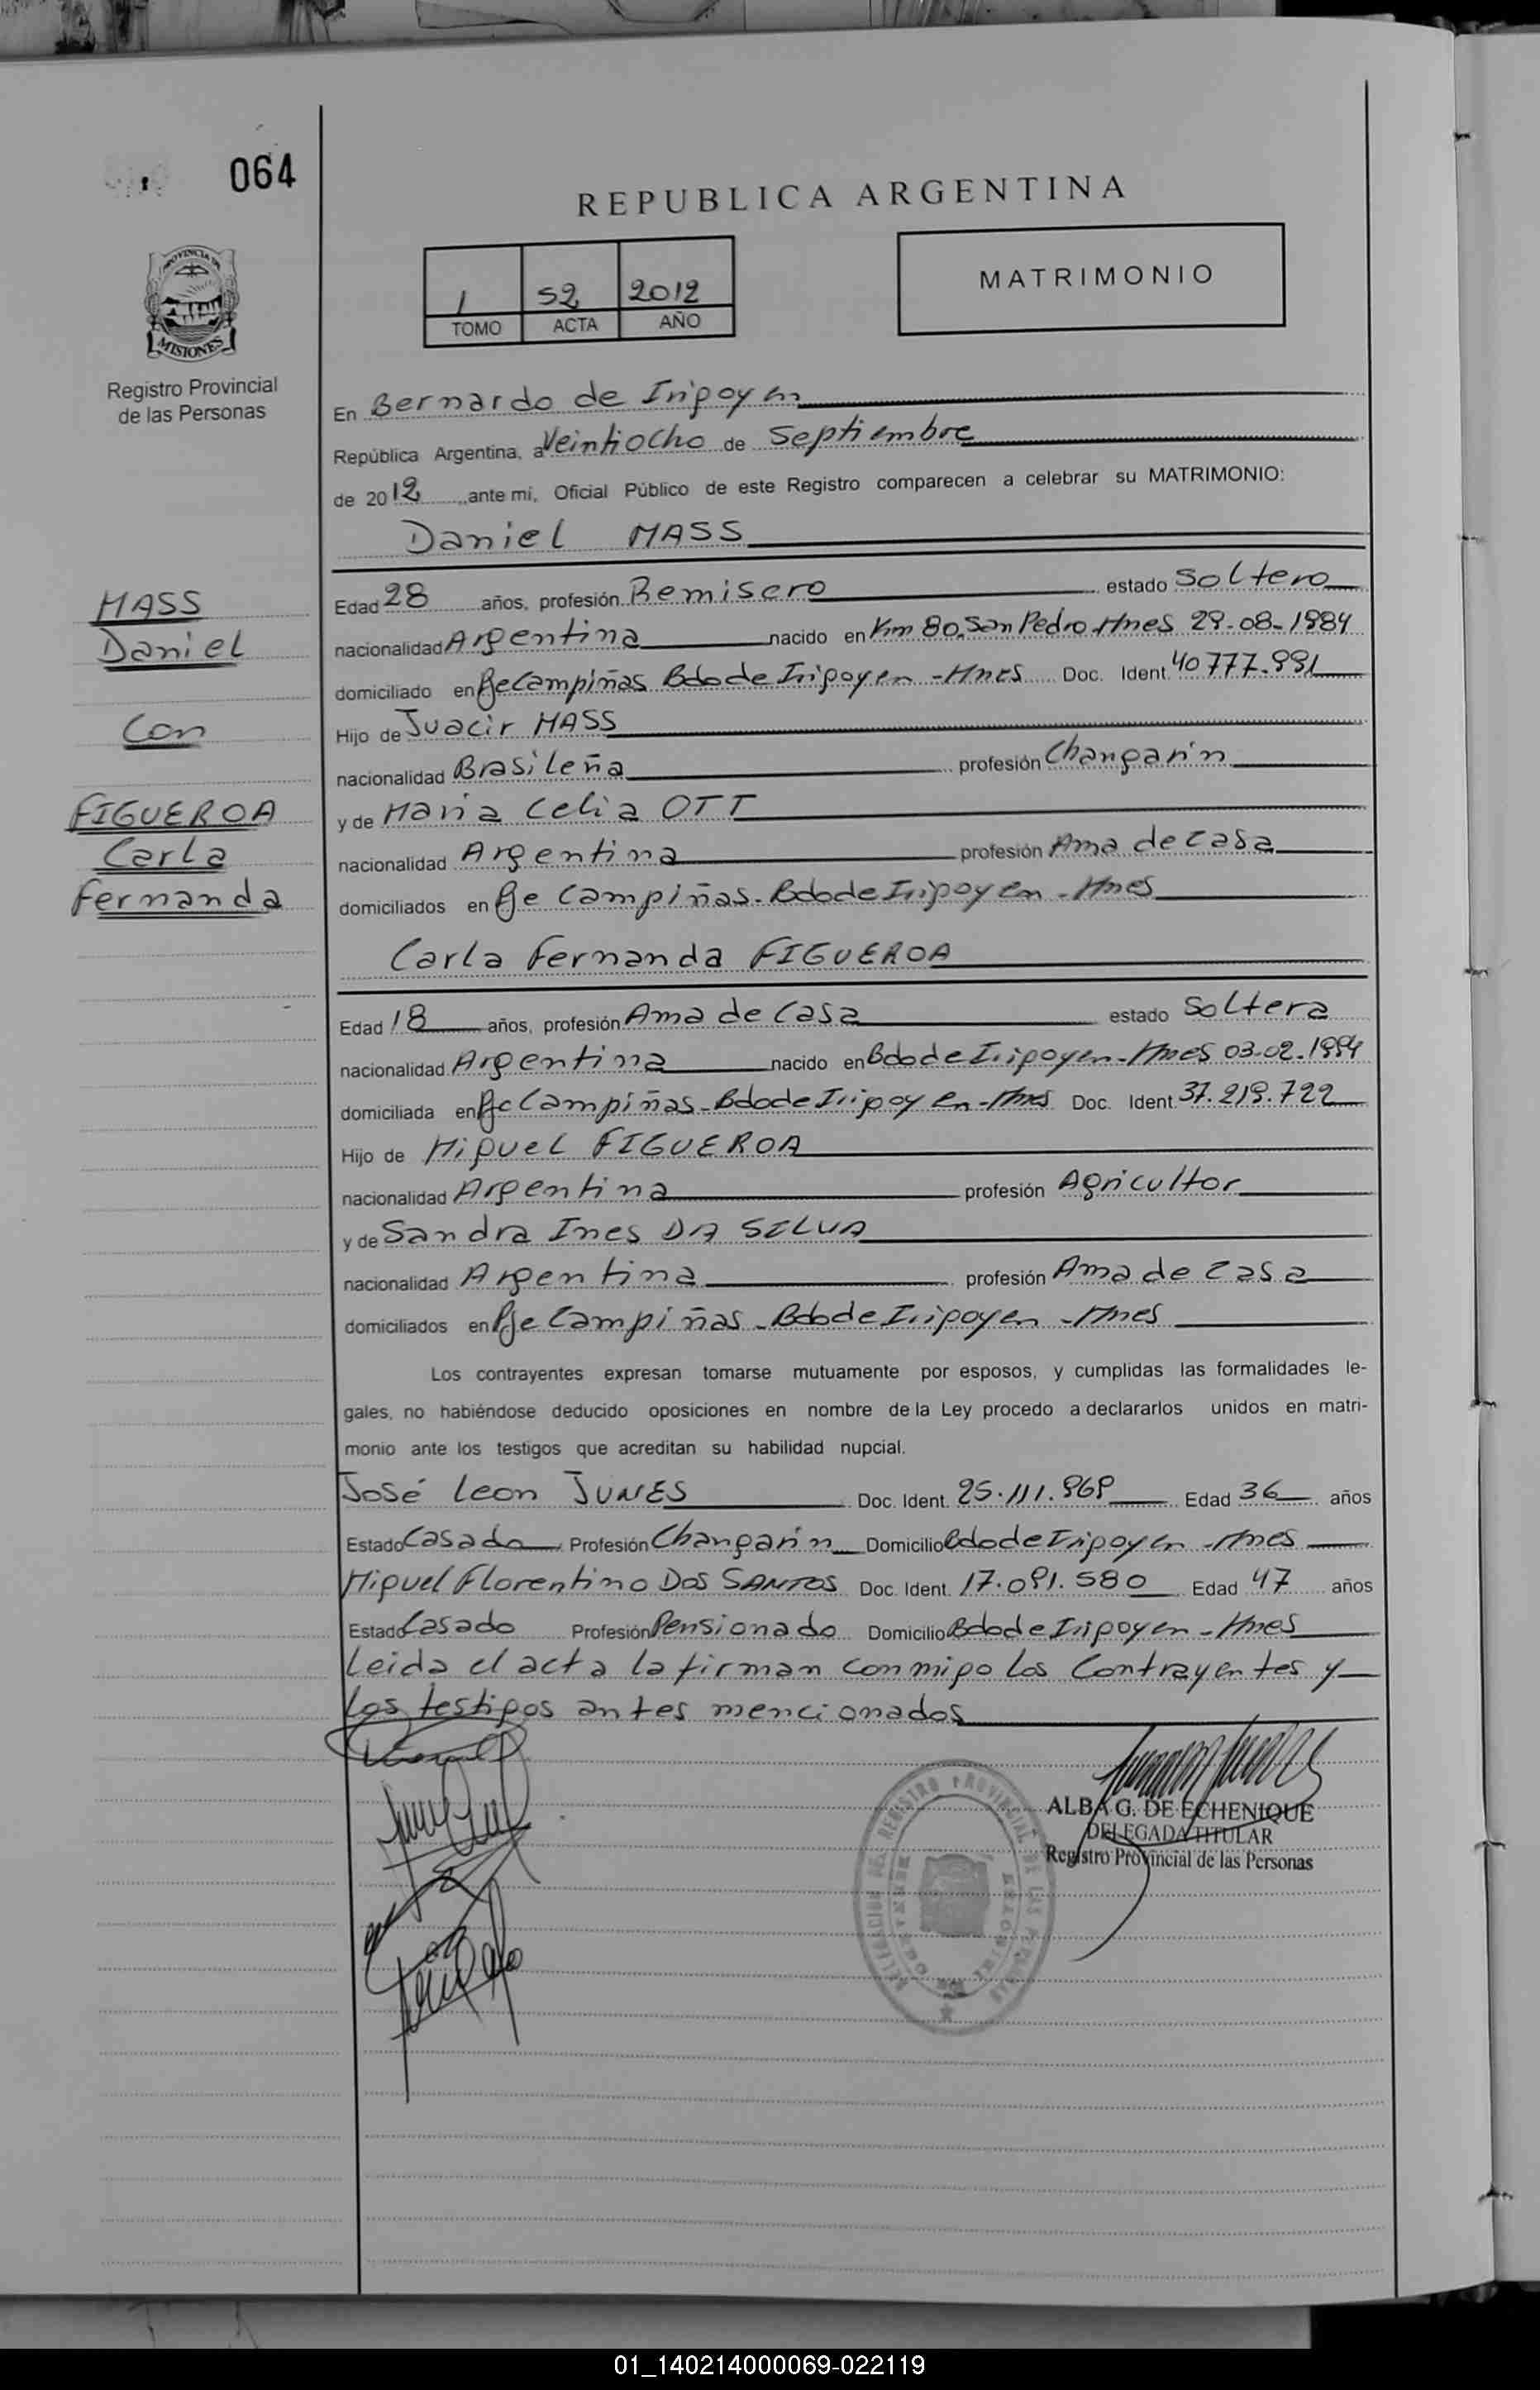 064
REPUBLICA ARGENTINA
PROVINCIA DE
MISIONES
Registro Provincial
de las Personas
1 52 2012
TOMO ACTA AÑO
MATRIMONIO
En Bernardo de Iripoyen
República Argentina, a Veintiocho de Septiembre
de 2012 ante mí, Oficial Público de este Registro comparecen a celebrar su MATRIMONIO:
Daniel MASS
MASS
Daniel
Con
FIGUEROA
Carla
Fernanda
Edad 28 años, profesión Remisero estado Soltero
nacionalidad Argentina nacido en Km 80. San Pedro Mnes 29-08-1984
domiciliado en Pje Campiñas Bdo de Iripoyen - Mnes Doc. Ident. 40777.991
Hijo de Juacir MASS
nacionalidad Brasileña profesión Changarín
y de Maria Celia OTT
nacionalidad Argentina profesión Ama de Casa
domiciliados en Pje Campiñas - Bdo de Iripoyen - Mnes
Carla Fernanda FIGUEROA
Edad 18 años, profesión Ama de Casa estado Soltera
nacionalidad Argentina nacido en Bdo de Iripoyen - Mnes 03-02-1994
domiciliada en Pje Campiñas - Bdo de Iripoyen - Mnes Doc. Ident. 37.219.722
Hijo de Miguel FIGUEROA
nacionalidad Argentina profesión Agricultor
y de Sandra Ines DA SILVA
nacionalidad Argentina profesión Ama de Casa
domiciliados en Pje Campiñas - Bdo de Iripoyen - Mnes
Los contrayentes expresan tomarse mutuamente por esposos, y cumplidas las formalidades le-
gales, no habiéndose deducido oposiciones en nombre de la Ley procedo a declararlos unidos en matri-
monio ante los testigos que acreditan su habilidad nupcial.
José Leon JUNES Doc. Ident. 25.111.969 Edad 36 años
Estado Casado Profesión Changarín Domicilio Bdo de Iripoyen - Mnes
Miguel Florentino Dos SANTOS Doc. Ident. 17.091.580 Edad 47 años
Estado Casado Profesión Pensionado Domicilio Bdo de Iripoyen - Mnes
Leida el acta la firman conmigo los Contrayentes y
los testigos antes mencionados
ALBA G. DE ECHENIQUE
DELEGADA TITULAR
Registro Provincial de las Personas
DELEGACION DEL REGISTRO PROVINCIAL DE LAS PERSONAS
01_140214000069-022119